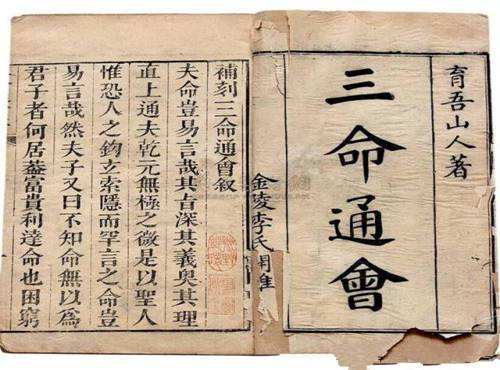 育吾山人著
三命通會
金陵李氏
補刻三命通會叙
夫命豈易言哉其旨深其義奧其理
直上通夫乾元無極之微是以聖人
惟恐人之鉤玄索隱而罕言之命豈
易言哉然夫子又曰不知命無以為
君子者何居葢富貴利達命也困窮